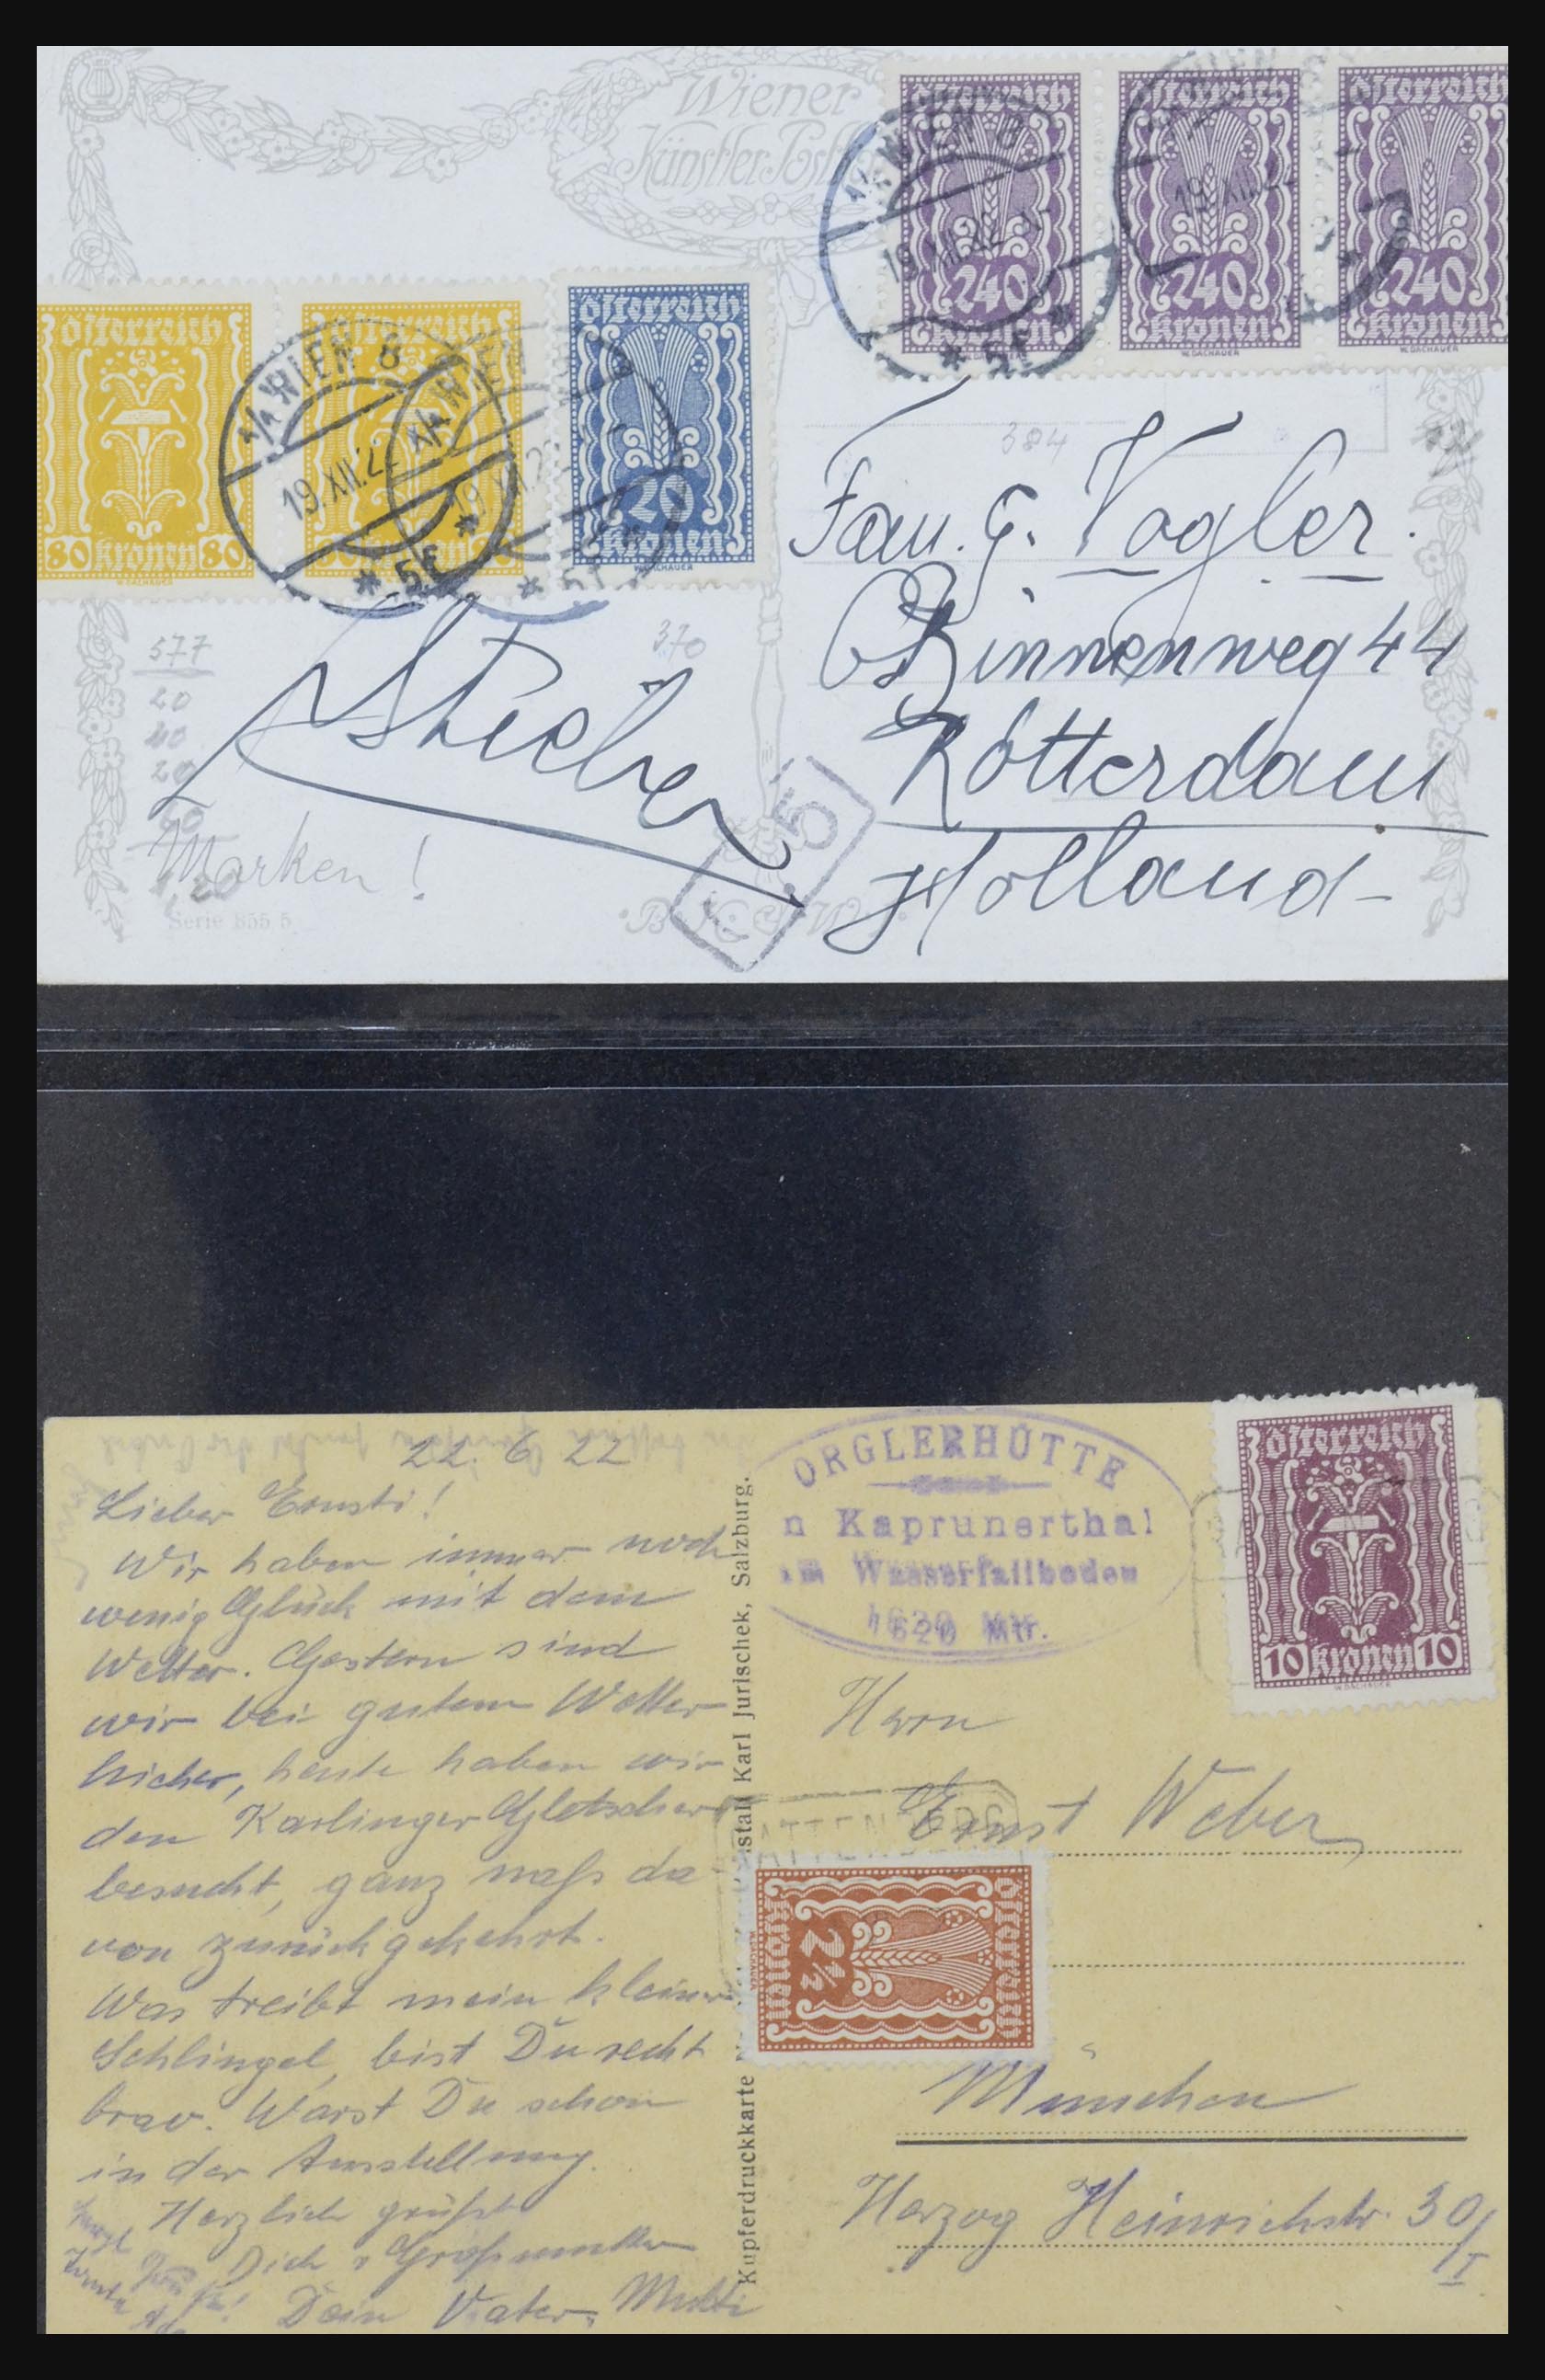 Wiener
Künstler Postk
österreich
österreich
österreich
240
240
240
kronen
kronen
kronen
W.DACHAUER
W.DACHAUER
1/1 WIEN 8
19.XII.22
* 5f *
19.XII.22
österreich
österreich
österreich
80 kronen 80
20
kronen
W.DACHAUER
W.DACHAUER
1/1 WIEN 8
19.XII.22
* 5f *
* 5f *
384
Frau. G. Vogler.
Binnenweg 44
Rotterdam
Holland-
577
20
40
20
370
Marken!
1,20
Serie 855 5
22. 6 22
Lieber Ernsti!
Wir haben immer noch
wenig Glück mit dem
Wetter. Gestern sind
wir bei gutem Wetter
hieher, heute haben wir
den Karlinger Gletscher
besucht, ganz naß da-
von zurückgekehrt.
Was treibt mein kleiner
Schlingel, bist Du recht
brav. Warst Du schon
in der Ausstellung.
Herzlich grüßt
Dich Großmutter
Dein Vater, Mutti
Kupferdruckkarte
stalt Karl Jurischek, Salzburg.
ORGLERHÜTTE
n Kaprunerthal
im Wasserfallboden
1620 Mtr.
österreich
10 kronen 10
W.DACHAUER
Herrn
Ernst Weber
ATTENBERG
österreich
2½
kronen
München
Herzog Heinrichstr. 30/I